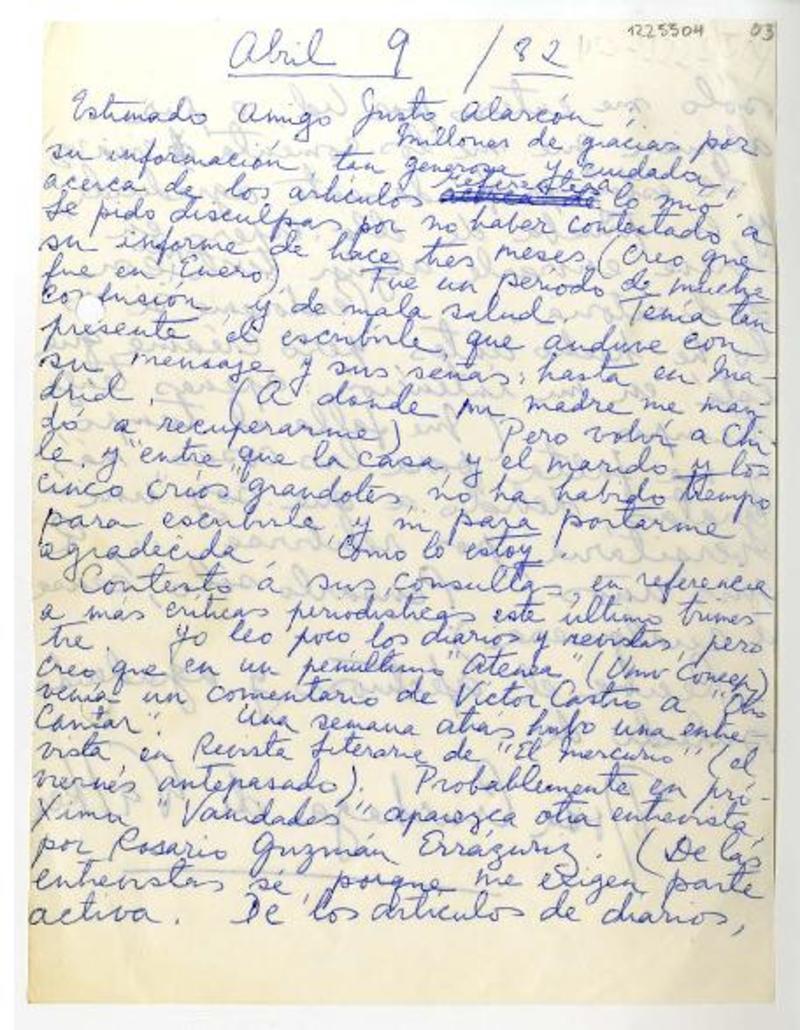 1225504 03
Abril 9 / 82
Estimado Amigo Justo Alarcón,
Millones de gracias por
su información tan generosa y cuidada,
acerca de los artículos referentes a lo mío.
Le pido disculpas por no haber contestado a
su informe de hace tres meses (creo que
fue en Enero). Fue un período de mucha
confusión y de mala salud. Tenía tan
presente el escribirle, que anduve con
su mensaje y sus señas, hasta en Ma-
drid. (A donde mi madre me man-
dó a recuperarme) Pero volví a Chi-
le, y "entre" que la casa y el marido y los
cinco críos grandotes, no ha habido tiempo
para escribirle y ni para portarme
agradecida como lo estoy.
Contesto a sus consultas, en referencia
a mas críticas periodísticas este último trimes
tre. Yo leo poco los diarios y revistas, pero
creo que en un penúltimo "Atenea" (Univ. Concep)
venía un comentario de Victor Castro a "Otro
Cantar". Una semana atrás hubo una entre-
vista en Revista Literaria de "El Mercurio" (el
viernes antepasado). Probablemente en pró-
xima "Vanidades" aparezca otra entrevista,
por Rosario Guzmán Errázuriz. (De las
entrevistas sé, porque me exigen parte
activa. De los artículos de diarios,